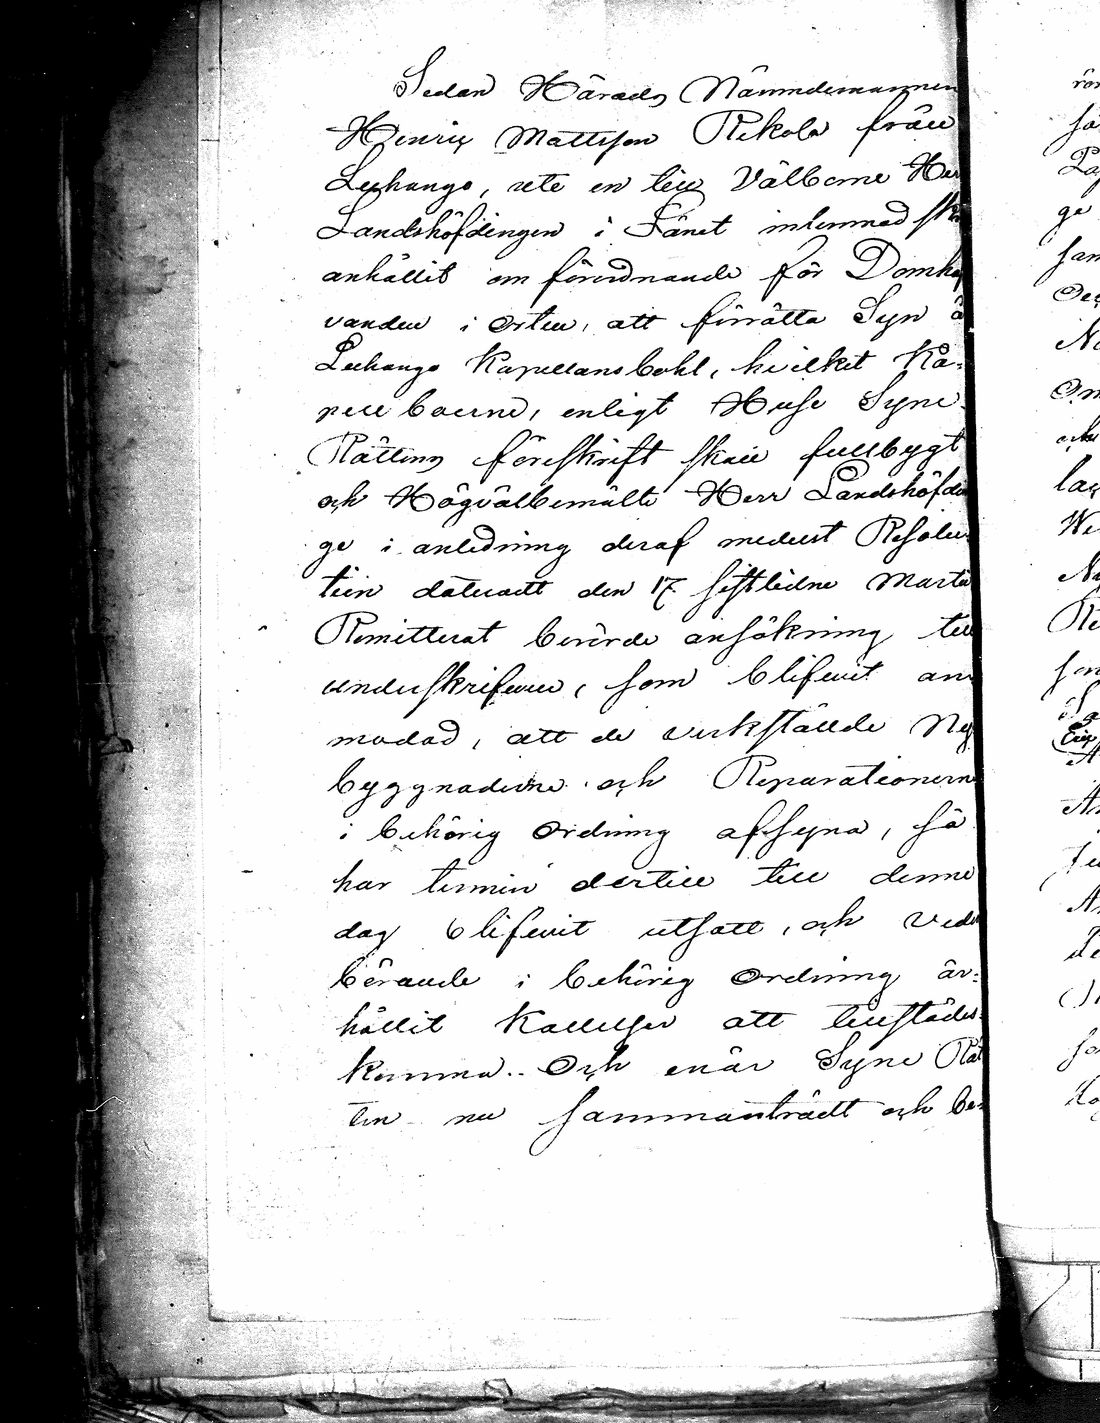 Sedan Härads Nämndemannen
Henric Mattsson Rekola från
Leehango, uti en till Välborne Her
Landshöfdingen i Länet inlemnad skr
anhållit om förordnande för Domhaf
vanden i Orten, att förrätta Syn å
Leehango Kapellansbohl, hvilket Ka-
pell boerne, enligt Huse Syne
Rättens föreskrift skall fullbygt
och Högvälbemälte Herr Landshöfdin
ge i anledning deraf medelst Resolu
tion dateradt den 17 sistledne Martii
Remitterat berörde ansökning till
underskrifven, som blifvit an
modad, att de verkstälde Ny
byggnaderne och Reparationerne
i behörig Ordning afsyna, så
har termin dertill till denne
dag blifvit utsatt, och veder
börande i behörig Ordning är-
hållit Kallelser att tillstädes
komma.. Och enär Syne Rät
ten nu sammanträdt och be